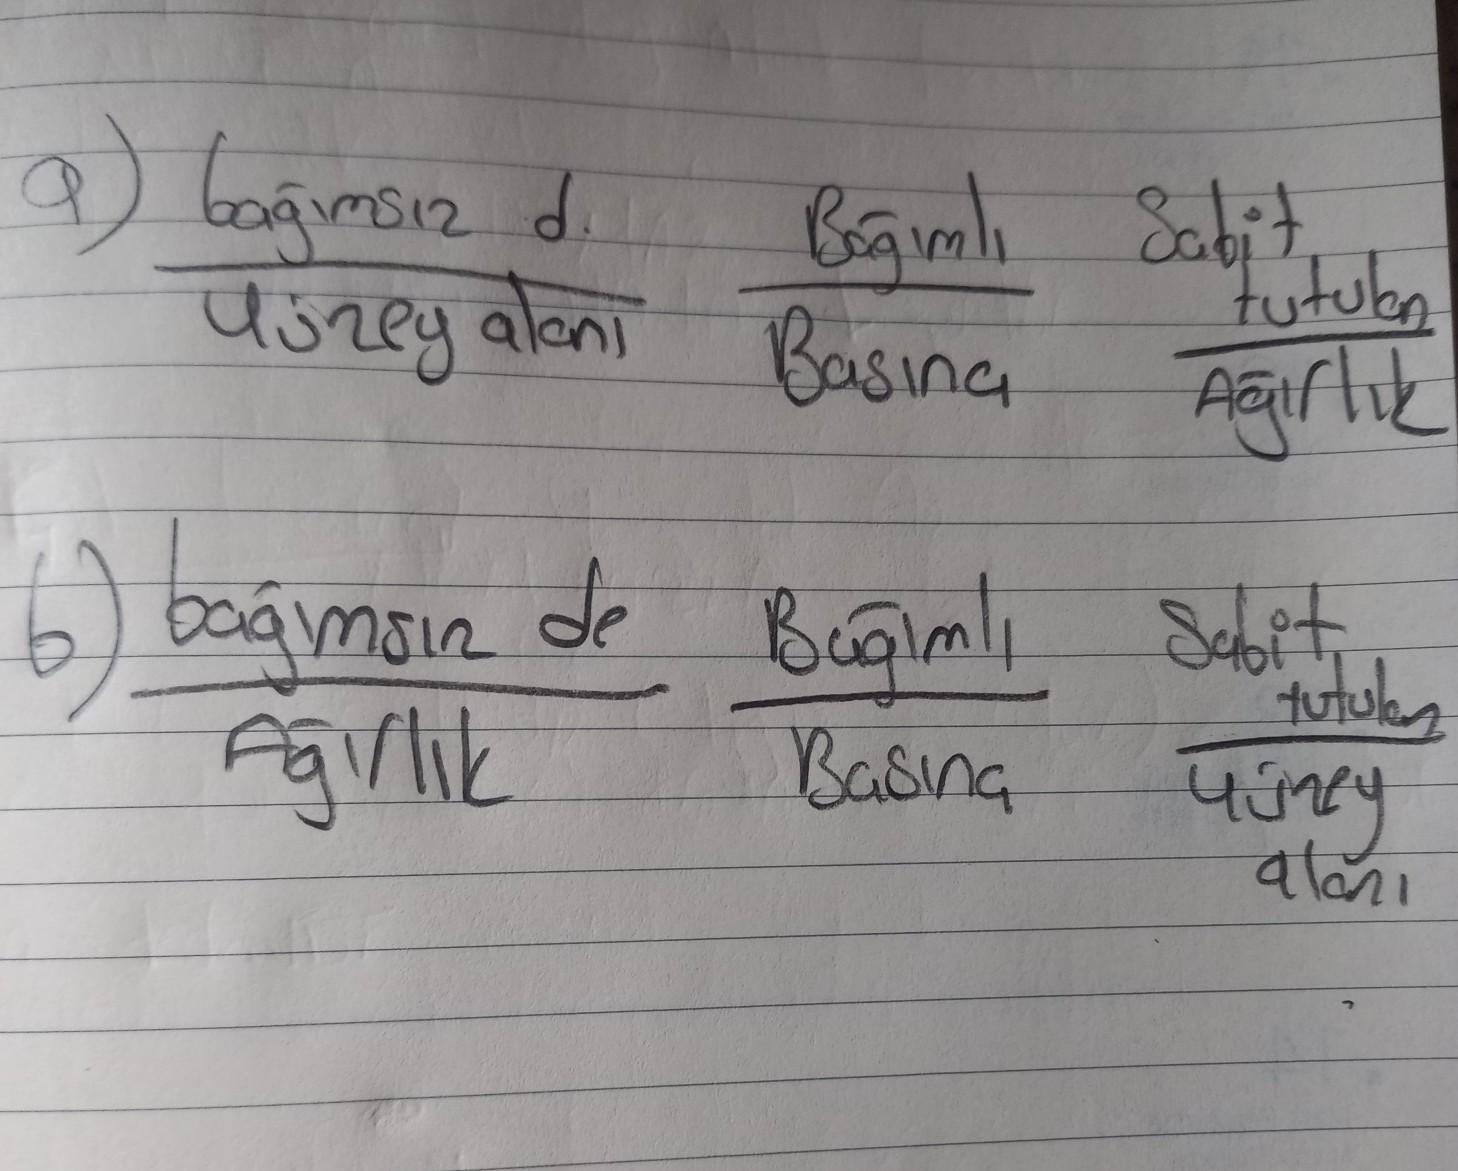 a) bağımsız d. Bağımlı Sabit tutulan
Yüzey alanı Basınç Ağırlık
b) bağımsız de Bağımlı Sabit tutulan
Ağırlık Basınç Yüzey alanı